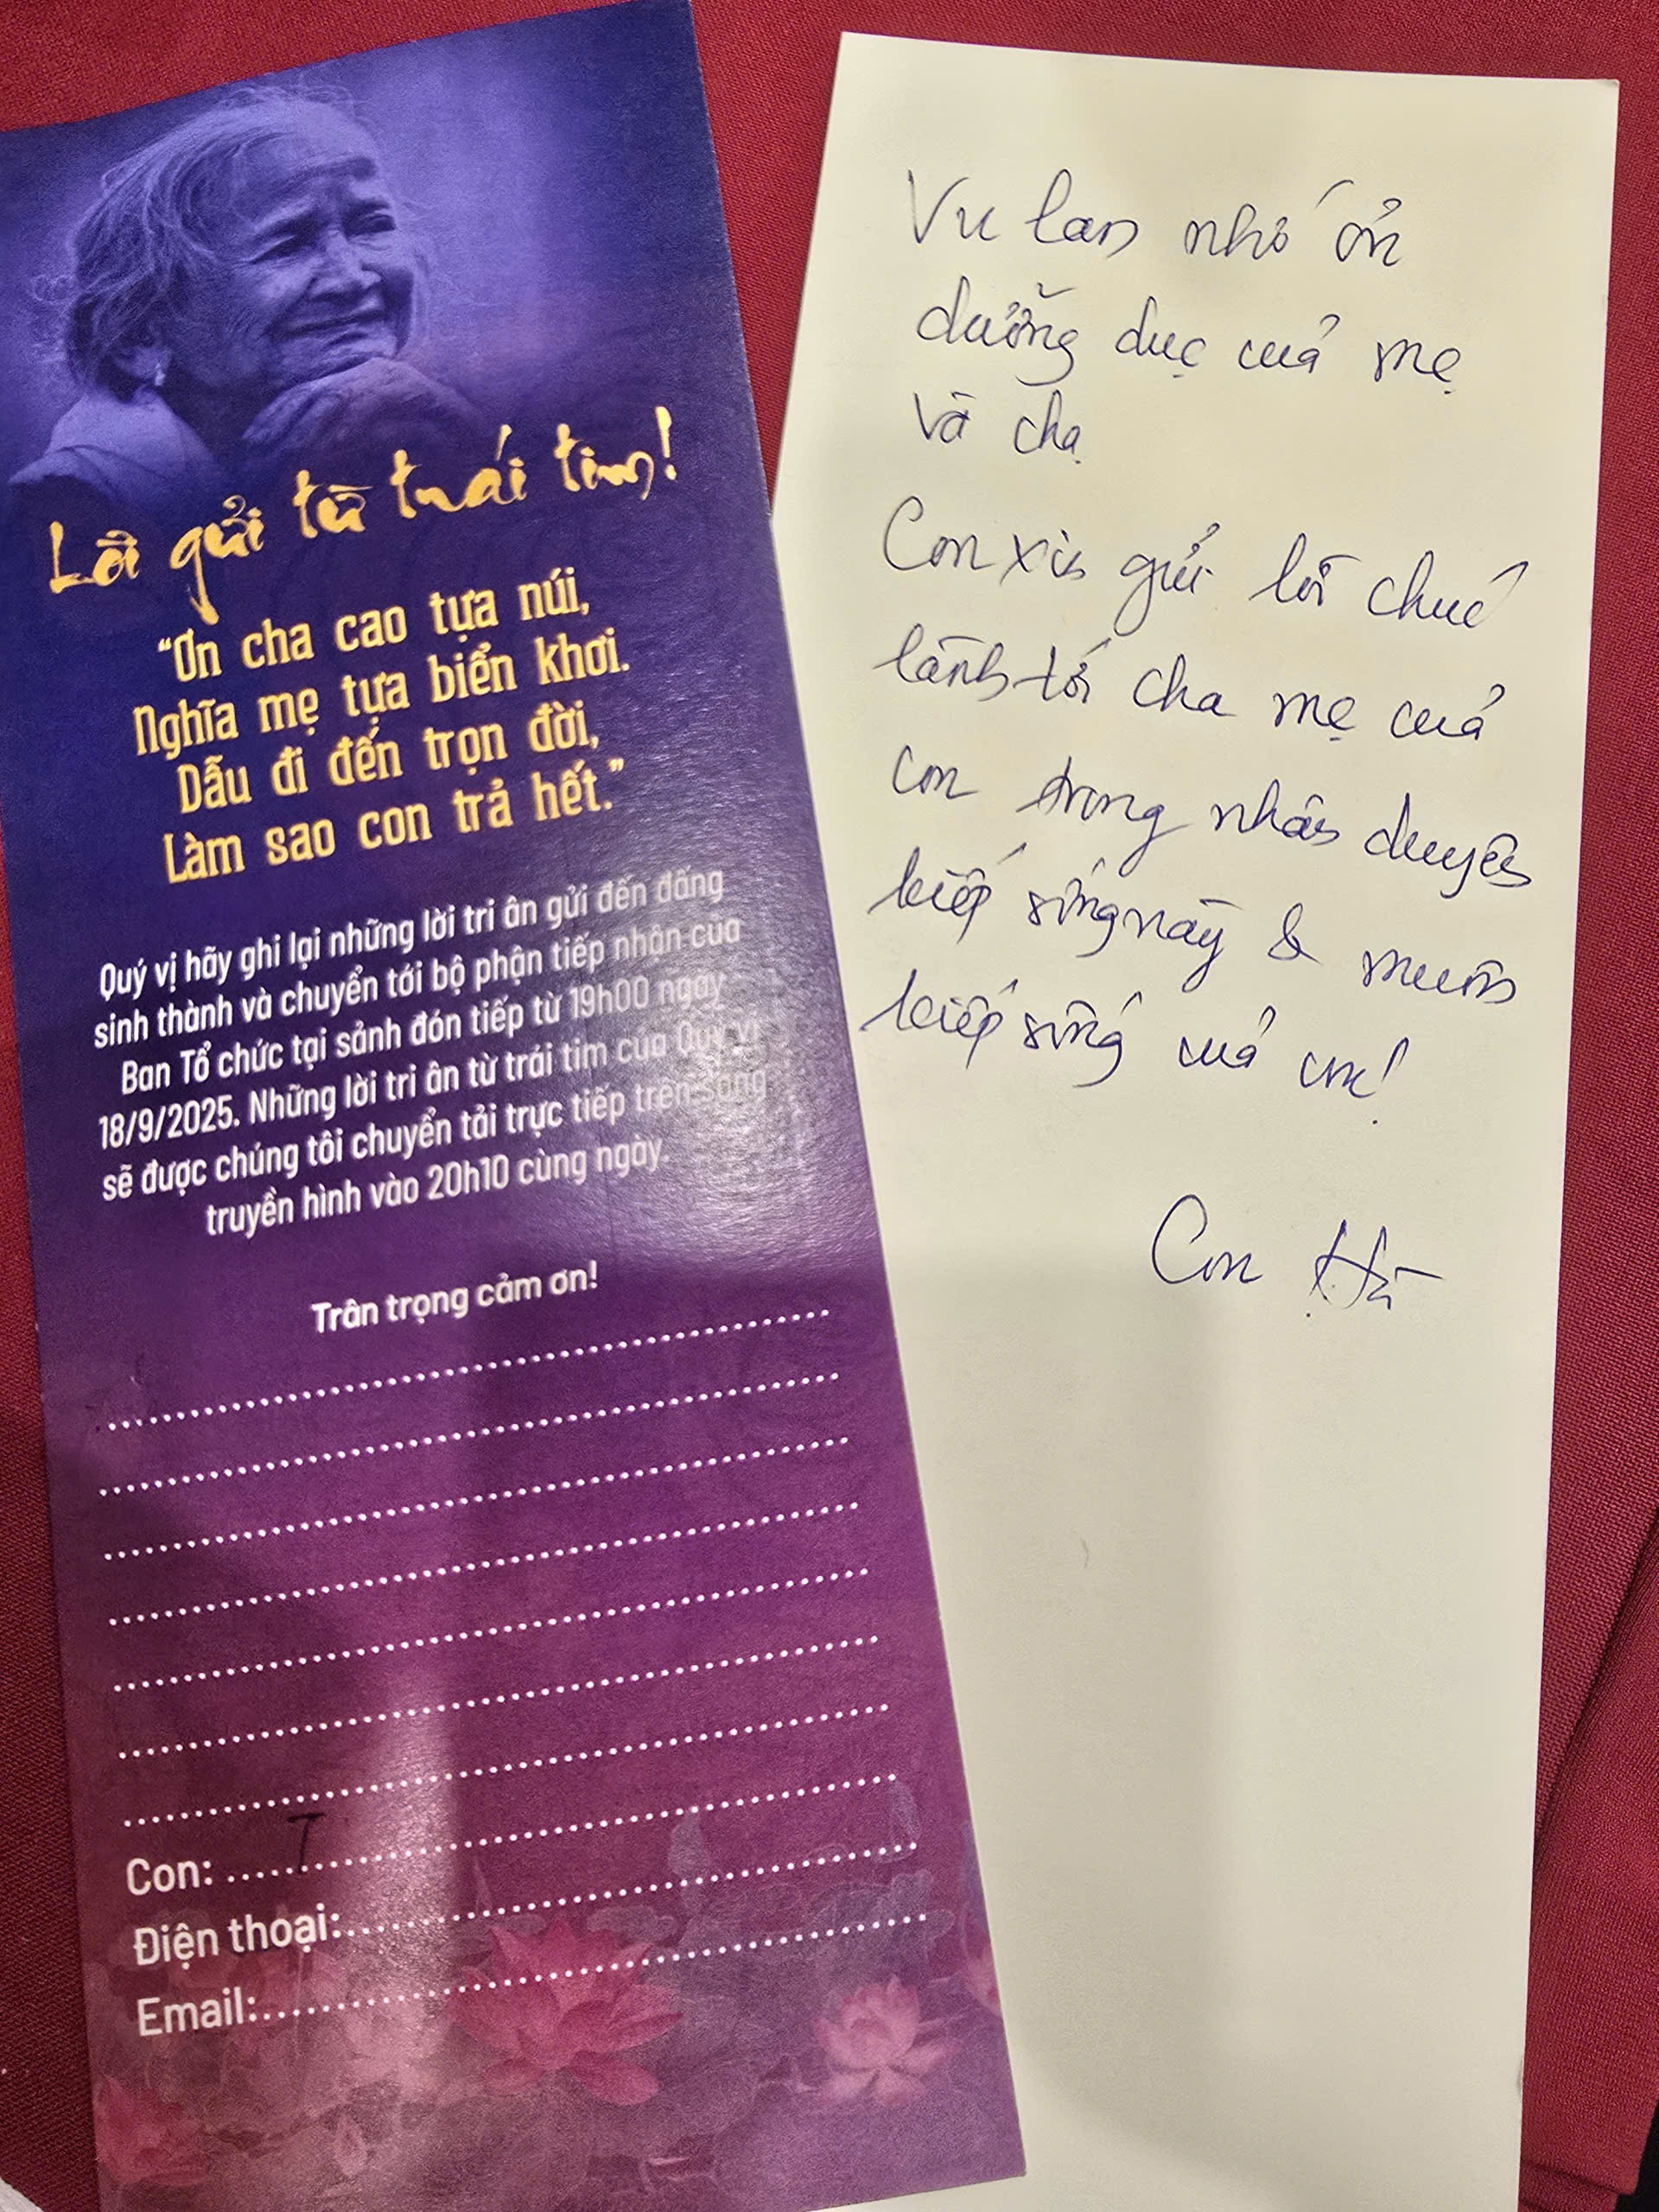 Lời gửi từ trái tim!
“Ơn cha cao tựa núi,
Nghĩa mẹ tựa biển khơi.
Dẫu đi đến trọn đời,
Làm sao con trả hết.”
Quý vị hãy ghi lại những lời tri ân gửi đến đấng
sinh thành và chuyển tới bộ phận tiếp nhận của
Ban Tổ chức tại sảnh đón tiếp từ 19h00 ngày
18/9/2025. Những lời tri ân từ trái tim của Quý vị
sẽ được chúng tôi chuyển tải trực tiếp trên sóng
truyền hình vào 20h10 cùng ngày.
Trân trọng cảm ơn!
Con: T
Điện thoại:
Email:
Vu lan nhớ ơn
dưỡng dục của mẹ
và cha
Con xin gửi lời chúc
lành tới cha mẹ của
con trong nhân duyên
kiếp sống này & muôn
kiếp sống của con!
Con Hà